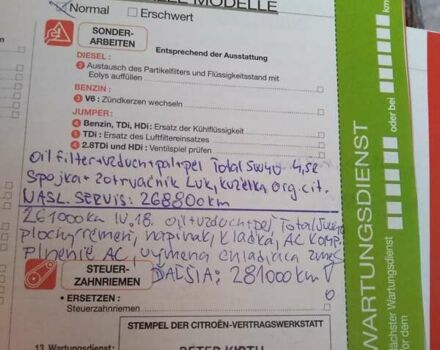 ELLE MODELLE
Normal Erschwert
km
SONDER-
ARBEITEN
Entsprechend der Ausstattung
DIESEL :
2 Austausch des Partikelfilters und Flüssigkeitsstand mit
Eolys auffüllen
BENZIN :
3 V6 : Zündkerzen wechseln
JUMPER :
4 Benzin, TDi, HDi: Ersatz der Kühlflüssigkeit
1 TDi : Ersatz des Luftfiltereinsatzes
4 2.8TDi und HDi : Ventilspiel prüfen
Oil filter+vzduch+pal+pel Total 5W40 4,5l
Spojka+zotrvačník Luk, kuželka org.cit.
NASL. SERVIS: 26880km
261000km IV.18. oil+vzduch+pel, Total
plochý remeň, napínak, kladka, AC komp.
plnenie AC, výmena chladiaca zmes
ĎALŠIA: 281000km
STEUER-
ZAHNRIEMEN
• ERSETZEN :
Steuerzahnriemen
STEMPEL DER CITROËN-VERTRAGSWERKSTATT
13. Wartungsdienst:
WARTUNGSDIENST
oder bei
Nächster Wartungsdienst